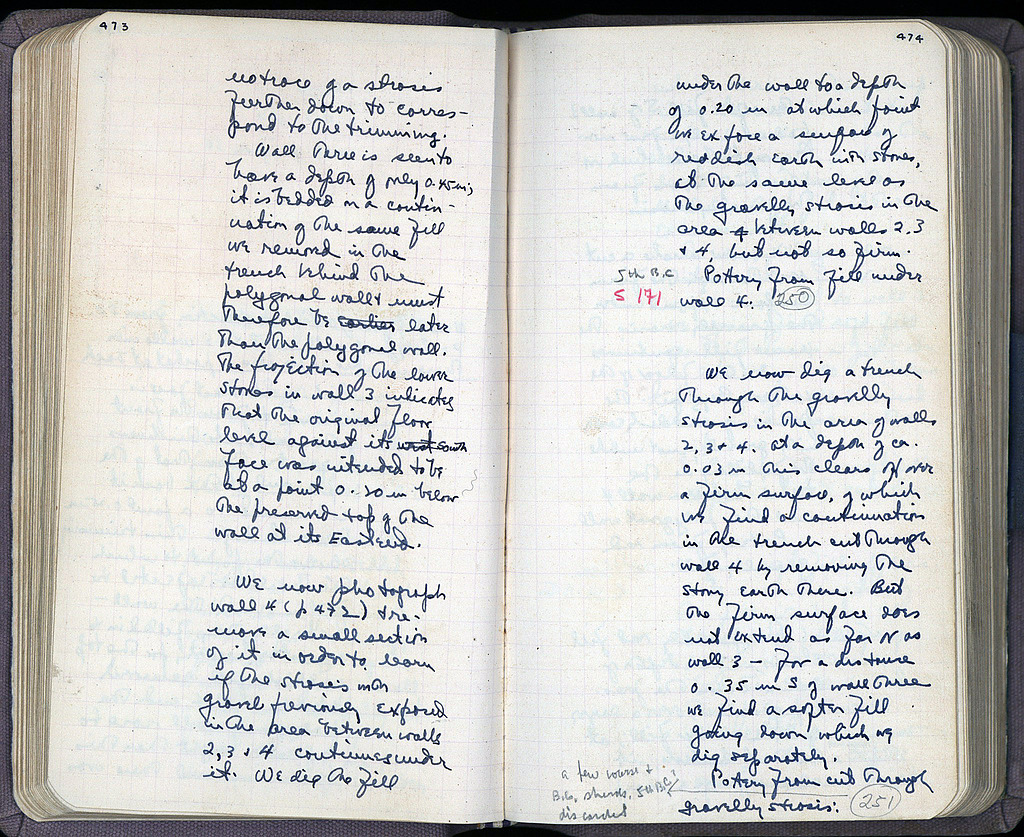 473
no trace of a strosis
further down to corres-
pond to the trimming.
Wall three is seen to
have a depth of only 0.45 m;
it is bedded on a contin-
uation of the same fill
we removed in the
trench behind the
polygonal wall & must
therefore be earlier later
than the polygonal wall.
The projection of the lower
stones in wall 3 indicates
that the original floor
level against its west south
face was intended to be
at a point 0.30 m below
the preserved top of the
wall at its East end.
We now photograph
wall 4 (p 472) & re-
move a small section
of it in order to learn
if the strosis with
gravel previously exposed
in the area between walls
2, 3 & 4 continues under
it. We dig the fill
474
under the wall to a depth
of 0.20 m at which point
we expose a surface of
reddish earth with stones,
at the same level as
the gravelly strosis in the
area between walls 2.3
& 4, but not so firm.
5th B.C. Pottery from fill under
S 171 wall 4: 250
We now dig a trench
through the gravelly
strosis in the area of walls
2, 3 & 4. at a depth of ca.
0.03 m this clears off over
a firm surface, of which
we find a continuation
in the trench cut through
wall 4 by removing the
stony earth there. But
the firm surface does
not extend as far N as
wall 3 – for a distance
0.35 m S of wall three
we find a softer fill
going down which we
dig separately.
a few coarse & Pottery from cut through
B.G. sherds, 5th B.C. gravelly strosis: 251
discarded